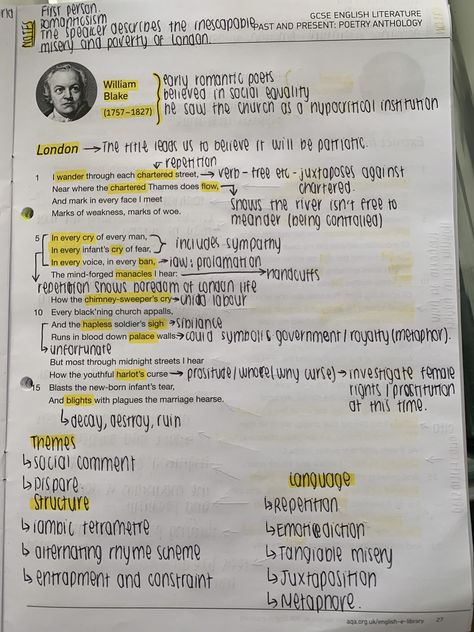 First person.
romanticism
The speaker describes the inescapable
misery and poverty of London.
NOTES
GCSE ENGLISH LITERATURE
PAST AND PRESENT: POETRY ANTHOLOGY
William
Blake
(1757–1827)
early romantic poets
believed in social equality
he saw the church as a hypocritical institution
London → The title leads us to believe it will be patriotic.
repetition
1 I wander through each chartered street, → verb - free etc - juxtaposes against
chartered.
Near where the chartered Thames does flow,
And mark in every face I meet
Marks of weakness, marks of woe.
shows the river isn't free to
meander (being controlled)
5 In every cry of every man,
In every infant's cry of fear,
includes sympathy
In every voice, in every ban, → law: proclamation
The mind-forged manacles I hear: → handcuffs
repetition shows boredom of London life
How the chimney-sweeper's cry → child labour
10 Every black'ning church appalls,
And the hapless soldier's sigh → sibilance
Runs in blood down palace walls → could symbolis government/royalty (metaphor).
↳ unfortunate
But most through midnight streets I hear
How the youthful harlot's curse → prositude/whore (why curse) → investigate female
rights / prostitution
at this time.
15 Blasts the new-born infant's tear,
And blights with plagues the marriage hearse.
↳ decay, destroy, ruin
Themes
↳ social comment
↳ Dispare.
Structure
↳ iambic tetrametre
↳ alternating rhyme scheme
↳ entrapment and constraint
Language
↳ Repetition
↳ Emotive diction
↳ Tangiable misery
↳ Juxtaposition
↳ Metaphore.
aqa.org.uk/english-e-library 27